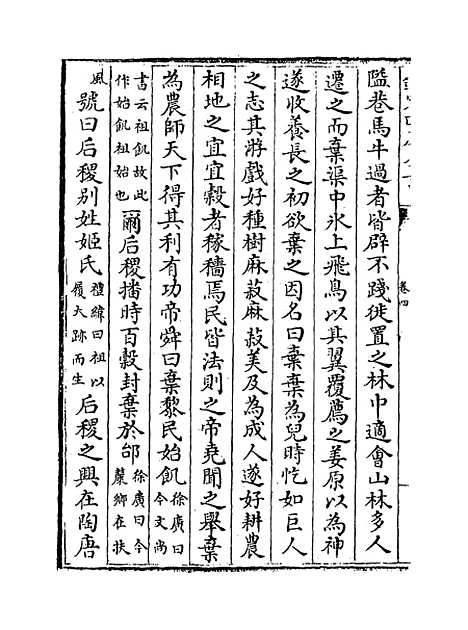 卷四
隘巷馬牛過者皆辟不踐徙置之林中適會山林多人
遷之而棄渠中氷上飛鳥以其翼覆薦之姜原以為神
遂收養長之初欲棄之因名曰棄棄為兒時忔如巨人
之志其游戲好種樹麻菽麻菽美及為成人遂好耕農
相地之宜宜穀者稼穡焉民皆法則之帝堯聞之舉棄
為農師天下得其利有功帝舜曰棄黎民始飢徐廣曰今文尚
書云祖飢故此作始飢祖始也爾后稷播時百穀封棄於邰徐廣曰今斄鄉在扶
風號曰后稷别姓姬氏禮緯曰祖以履大跡而生后稷之興在陶唐